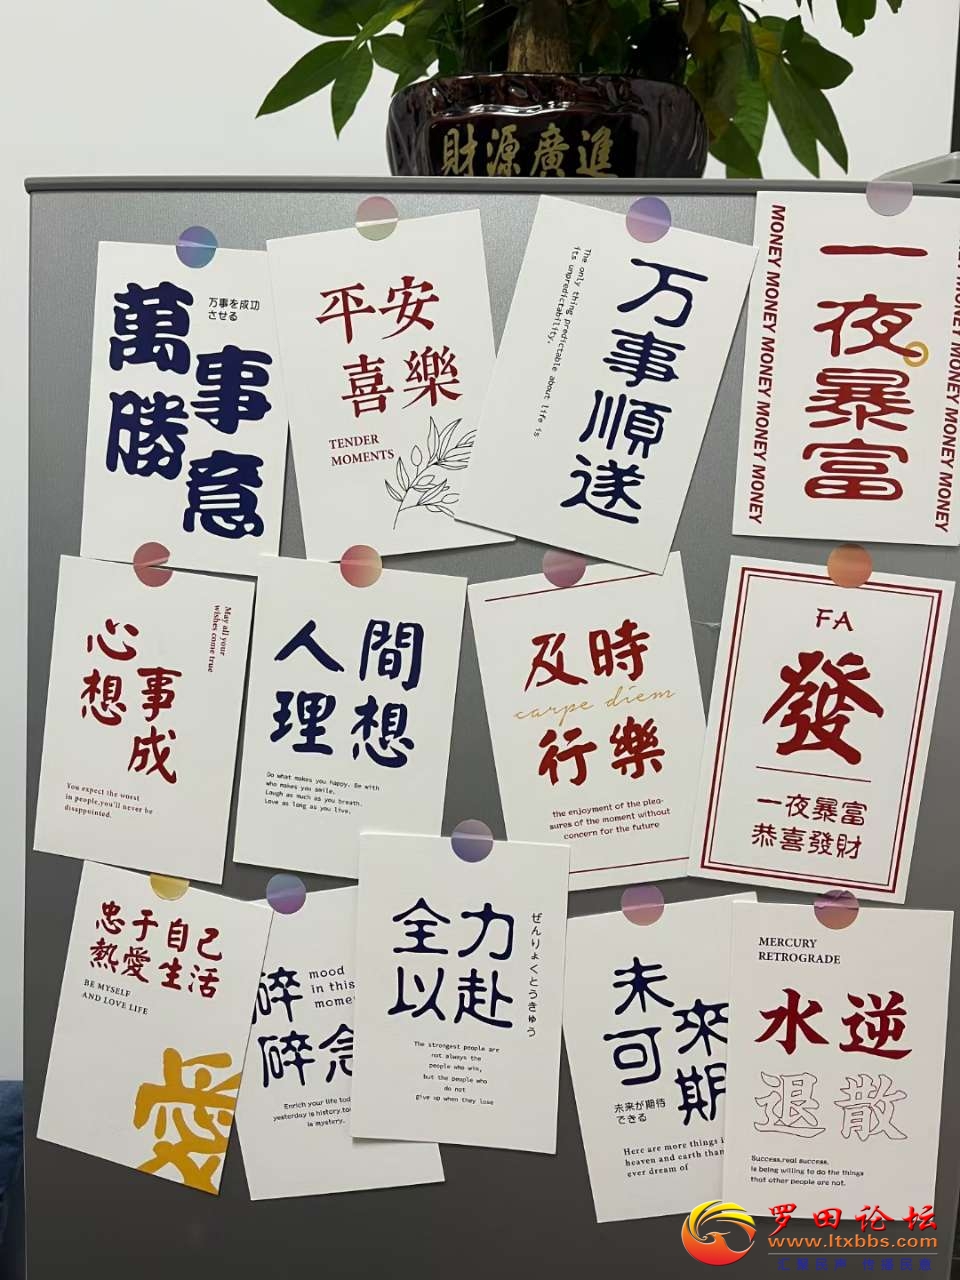 財源廣進
萬事
勝意
万事を成功
させる
平安
喜樂
TENDER
MOMENTS
万事順遂
The only thing predictable about life is
its unpredictability.
一夜暴富
MONEY MONEY MONEY MONEY MONEY MONEY
MONEY MONEY MONEY MONEY MONEY
心想
事成
May all your
wishes come true
You expect the worst
in people,you'll never be
disappointed.
人間
理想
Do what makes you happy. Be with
who makes you smile.
Laugh as much as you breath.
Love as long as you live.
及時
carpe diem
行樂
the enjoyment of the plea-
sures of the moment without
concern for the future
FA
發
一夜暴富
恭喜發財
忠于自己
熱愛生活
BE MYSELF
AND LOVE LIFE
愛
碎
碎念
mood
in this
mome
Enrich your life tod
yesterday is history.to
is mystery.
全力
以赴
ぜんりょくとうきゅう
The strongest people are
not always the
people who win,
but the people who
do not
give up when they lose
未來
可期
未来が期待
できる
Here are more things i
heaven and earth than
ever dream of
MERCURY
RETROGRADE
水逆
退散
Success,real success,
is being willing to do the things
that other people are not.
罗田论坛
www.ltxbbs.com